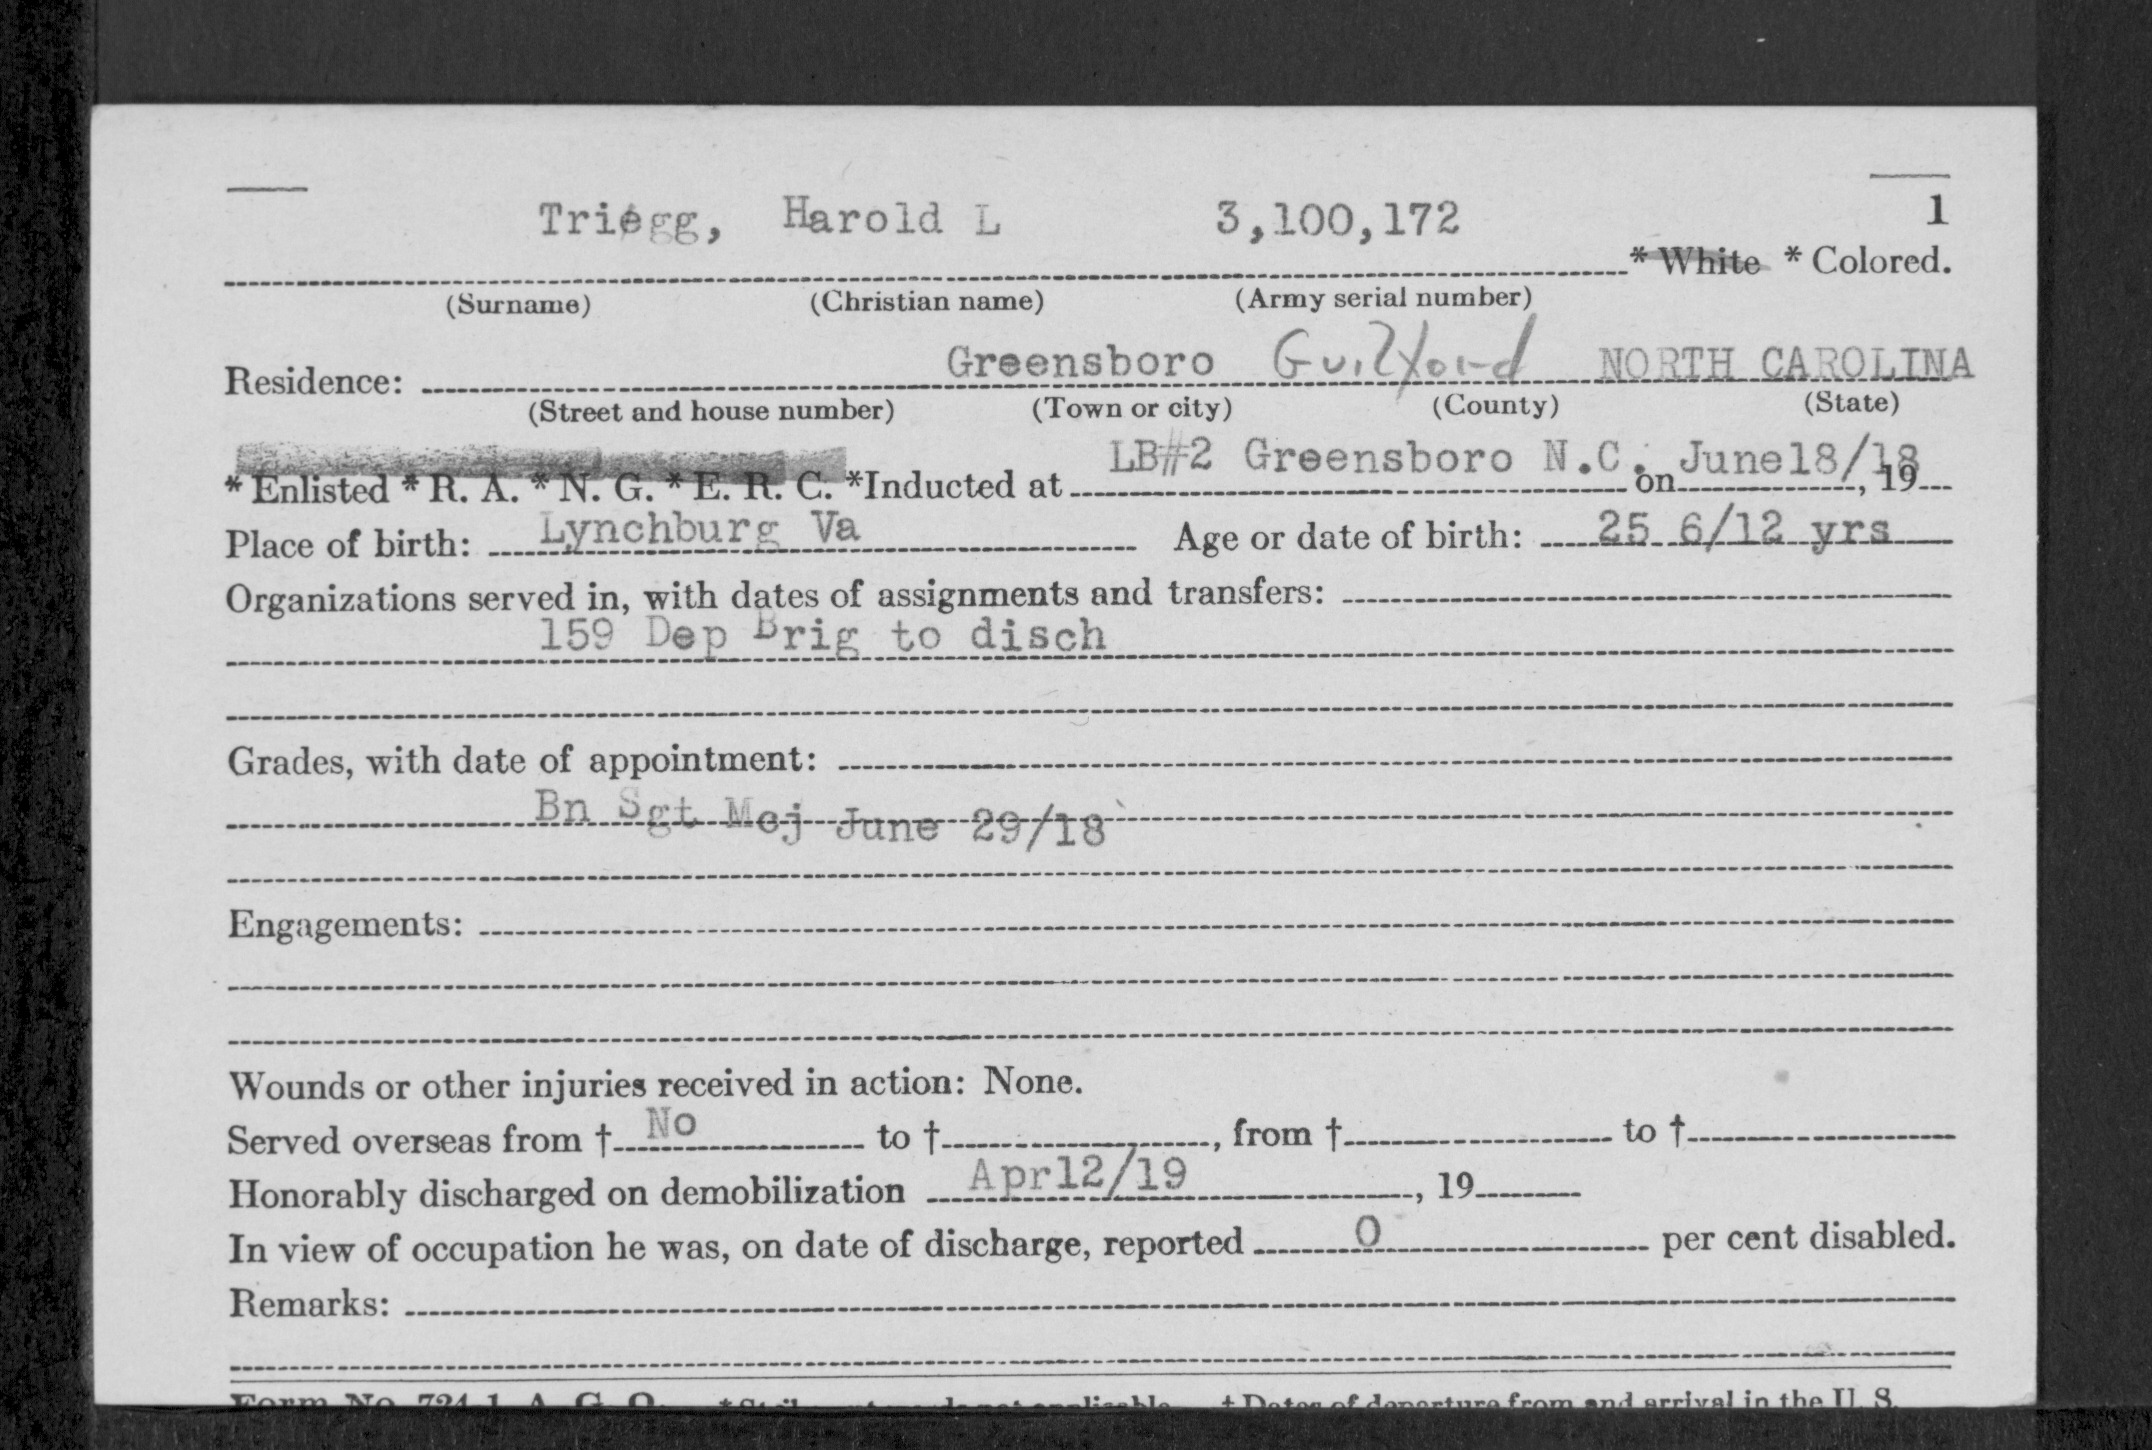 Triegg, Harold L 3,100,172 1
* White * Colored.
(Surname) (Christian name) (Army serial number)
Residence: Greensboro Guilford NORTH CAROLINA
(Street and house number) (Town or city) (County) (State)
* Enlisted * R. A. * N. G. * E. R. C. *Inducted at LB#2 Greensboro N.C. on June18/18, 19
Place of birth: Lynchburg Va Age or date of birth: 25 6/12 yrs
Organizations served in, with dates of assignments and transfers:
159 Dep Brig to disch
Grades, with date of appointment:
Bn Sgt Mej June 29/18
Engagements:
Wounds or other injuries received in action: None.
Served overseas from † No to †, from † to †
Honorably discharged on demobilization Apr12/19, 19
In view of occupation he was, on date of discharge, reported 0 per cent disabled.
Remarks:
Form No. 724-1, A. G. O. * Strike out words not applicable. † Dates of departure from and arrival in the U. S.